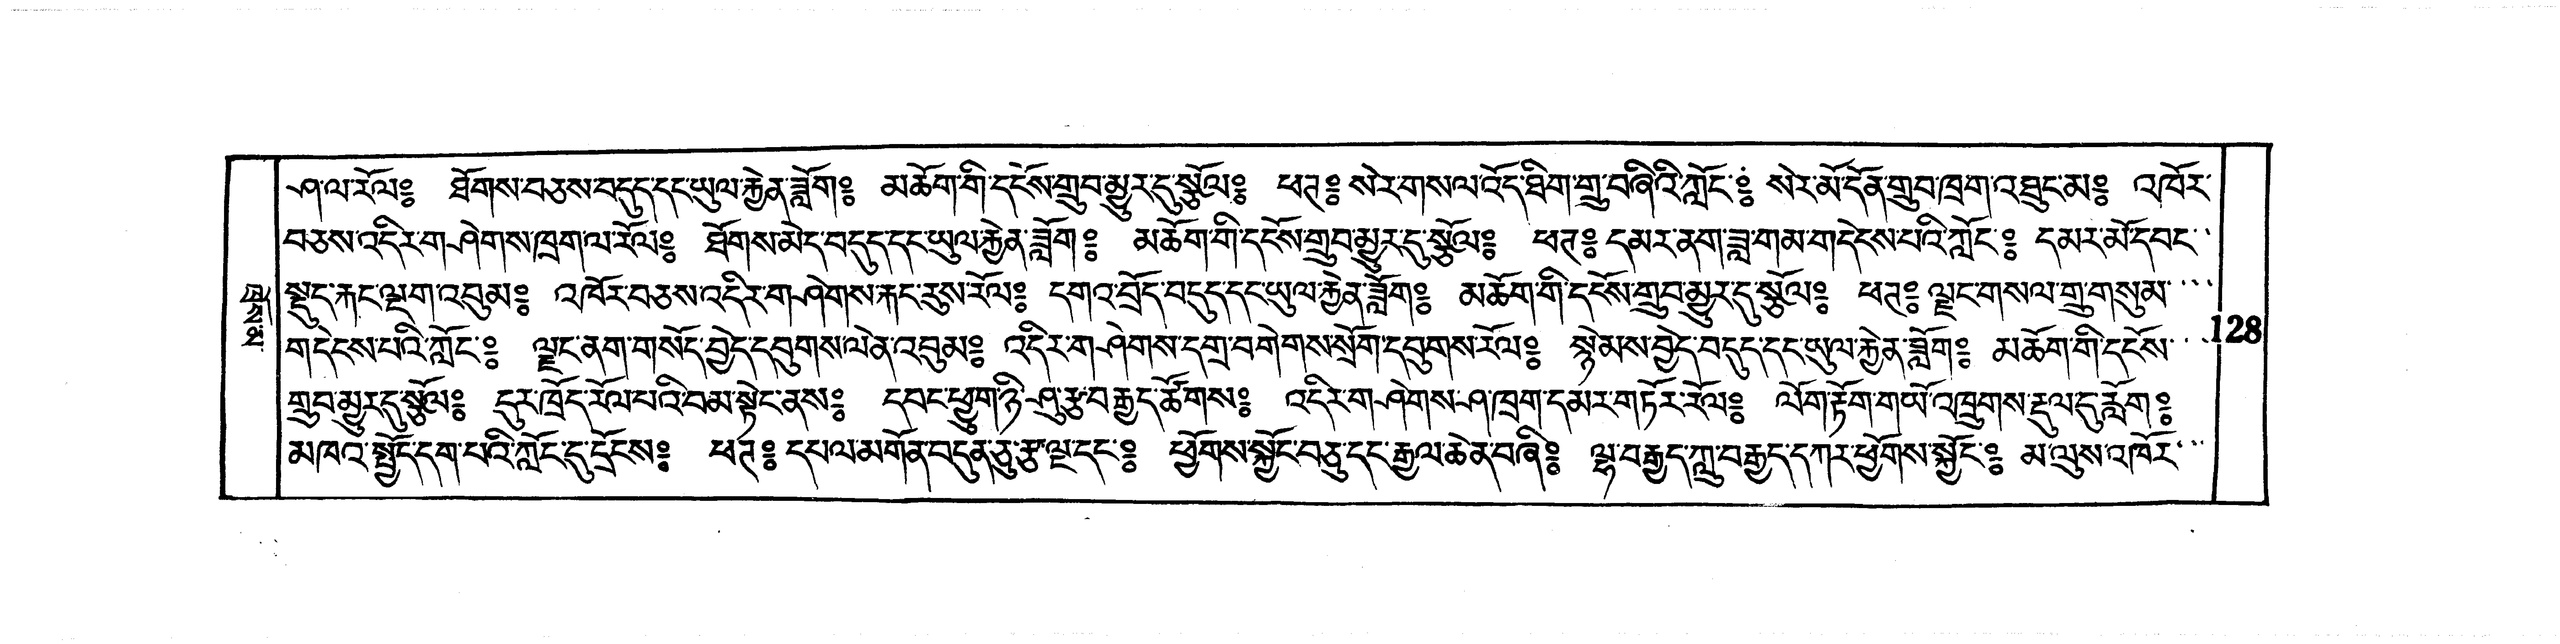 ཤ་ལ་རོལ༔ ཐོགས་བཅས་བདུད་དང་ཡུལ་རྐྱེན་ཟློག༔ མཆོག་གི་དངོས་གྲུབ་མྱུར་དུ་སྩོལ༔ ཕཊ༔ སེར་གསལ་འོད་ཐིག་གྲུ་བཞིའི་ཀློང་༔ སེར་མོ་དོན་གྲུབ་ཁྲག་འཐུང་མ༔ འཁོར་
བཅས་འདིར་གཤེགས་ཁྲག་ལ་རོལ༔ ཐོགས་མེད་བདུད་དང་ཡུལ་རྐྱེན་ཟློག༔ མཆོག་གི་དངོས་གྲུབ་མྱུར་དུ་སྩོལ༔ ཕཊ༔ དམར་ནག་ཟླ་གམ་གདེངས་པའི་ཀློང་༔ དམར་མོ་དབང་
སྡུད་རྐང་ལྡག་འབུམ༔ འཁོར་བཅས་འདིར་གཤེགས་རྐང་རུས་རོལ༔ དགའ་བྲོད་བདུད་དང་ཡུལ་རྐྱེན་ཟློག༔ མཆོག་གི་དངོས་གྲུབ་མྱུར་དུ་སྩོལ༔ ཕཊ༔ ལྗང་གསལ་གྲུ་གསུམ
གདེངས་པའི་ཀློང་༔ ལྗང་ནག་གསོད་བྱེད་དབུགས་ལེན་འབུམ༔ འདིར་གཤེགས་དགྲ་བགེགས་སྲོག་དབུགས་རོལ༔ སྙེམས་བྱེད་བདུད་དང་ཡུལ་རྐྱེན་ཟློག༔ མཆོག་གི་དངོས
གྲུབ་མྱུར་དུ་སྩོལ༔ དུར་ཁྲོད་རོལ་པའི་བམ་སྟེང་ནས༔ དབང་ཕྱུག་ཉི་ཤུ་རྩ་བརྒྱད་ཚོགས༔ འདིར་གཤེགས་ཤ་ཁྲག་དམར་གཏོར་རོལ༔ ལོག་རྟོག་གཡོ་འཁྲུགས་རྡུལ་དུ་རློག༔
མཁའ་སྤྱོད་དག་པའི་ཀློང་དུ་དྲོངས༔ ཕཊ༔ དཔལ་མགོན་བདུན་ཅུ་རྩ་ལྔ་དང་༔ ཕྱོགས་སྐྱོང་བཅུ་དང་རྒྱལ་ཆེན་བཞི༔ ལྷ་བརྒྱད་ཀླུ་བརྒྱད་དཀར་ཕྱོགས་སྐྱོང་༔ མ་ལུས་འཁོར
128